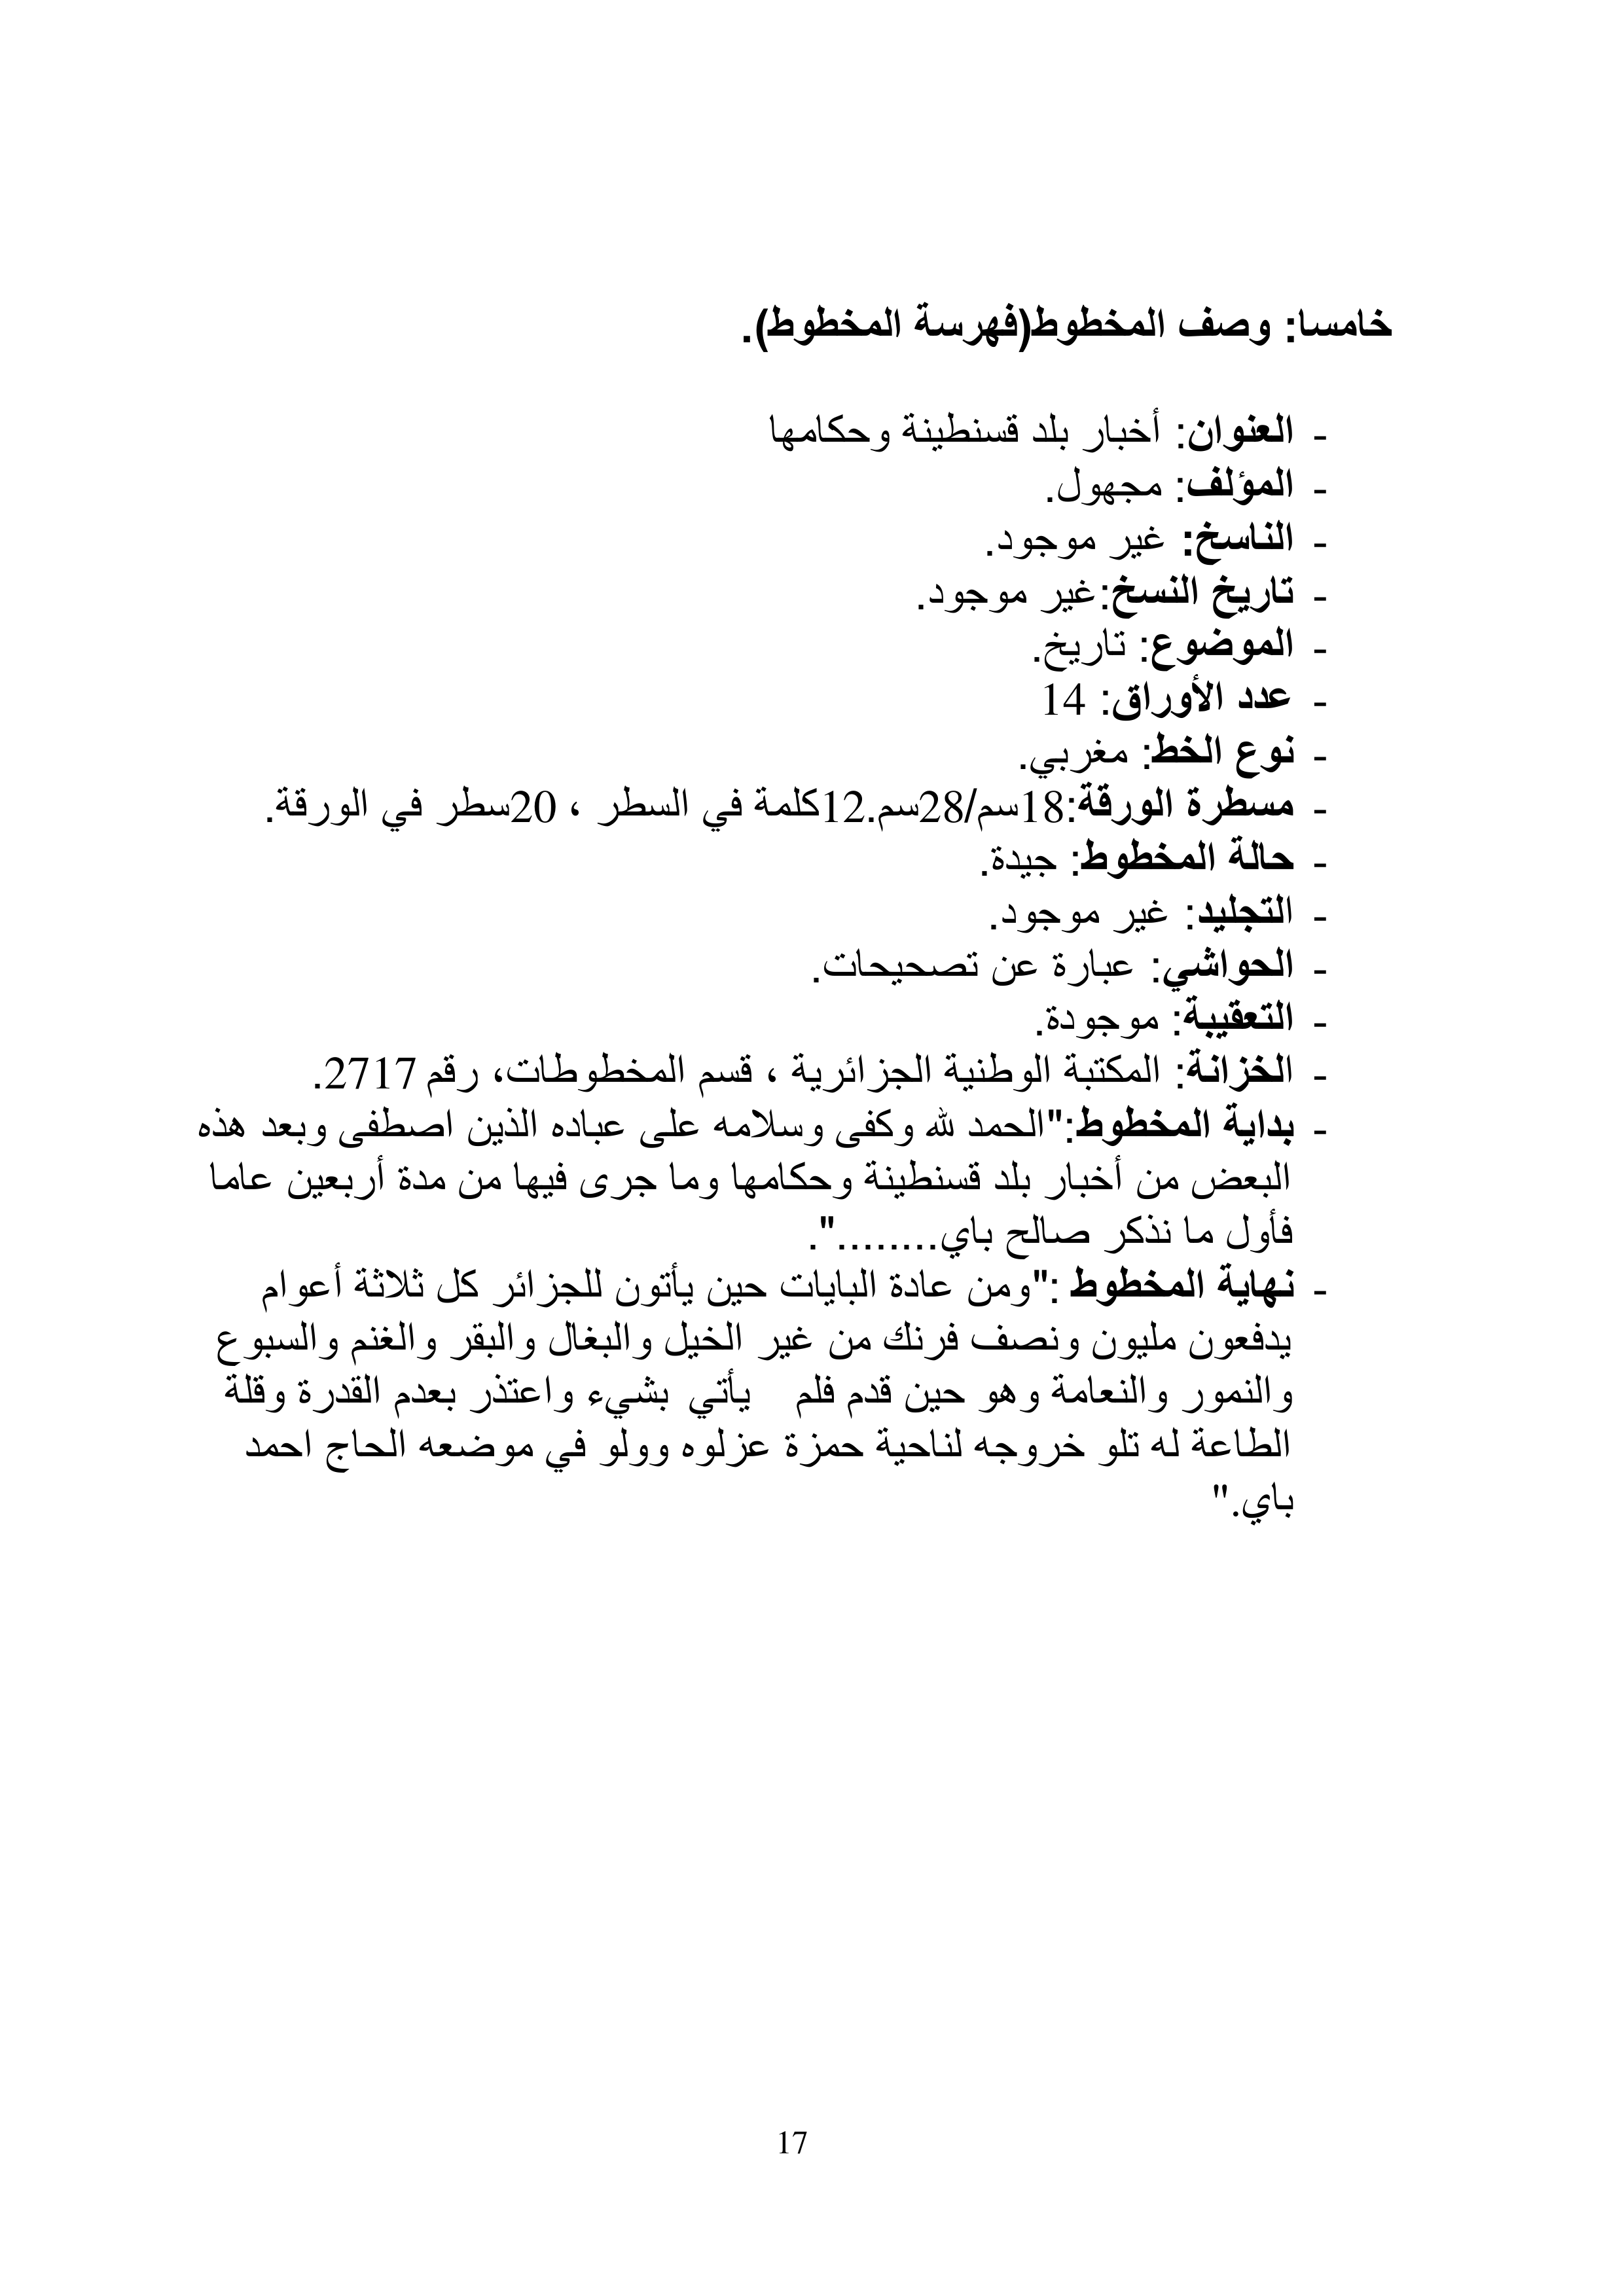 خامسا: وصف المخطوط(فهرسة المخطوط).
- العنوان: أخبار بلد قسنطينة وحكامها
- المؤلف: مجهول.
- الناسخ: غير موجود.
- تاريخ النسخ:غير موجود.
- الموضوع: تاريخ.
- عدد الأوراق: 14
- نوع الخط: مغربي.
- مسطرة الورقة:18سم/28سم.12كلمة في السطر ، 20سطر في الورقة.
- حالة المخطوط: جيدة.
- التجليد: غير موجود.
- الحواشي: عبارة عن تصحيحات.
- التعقيبة: موجودة.
- الخزانة: المكتبة الوطنية الجزائرية ، قسم المخطوطات، رقم 2717.
- بداية المخطوط:"الحمد لله وكفى وسلامه على عباده الذين اصطفى وبعد هذه
البعض من أخبار بلد قسنطينة وحكامها وما جرى فيها من مدة أربعين عاما
فأول ما نذكر صالح باي........".
- نهاية المخطوط :"ومن عادة البايات حين يأتون للجزائر كل ثلاثة أعوام
يدفعون مليون ونصف فرنك من غير الخيل والبغال والبقر والغنم والسبوع
والنمور والنعامة وهو حين قدم فلم يأتي بشيء واعتذر بعدم القدرة وقلة
الطاعة له تلو خروجه لناحية حمزة عزلوه وولو في موضعه الحاج احمد
باي."
17